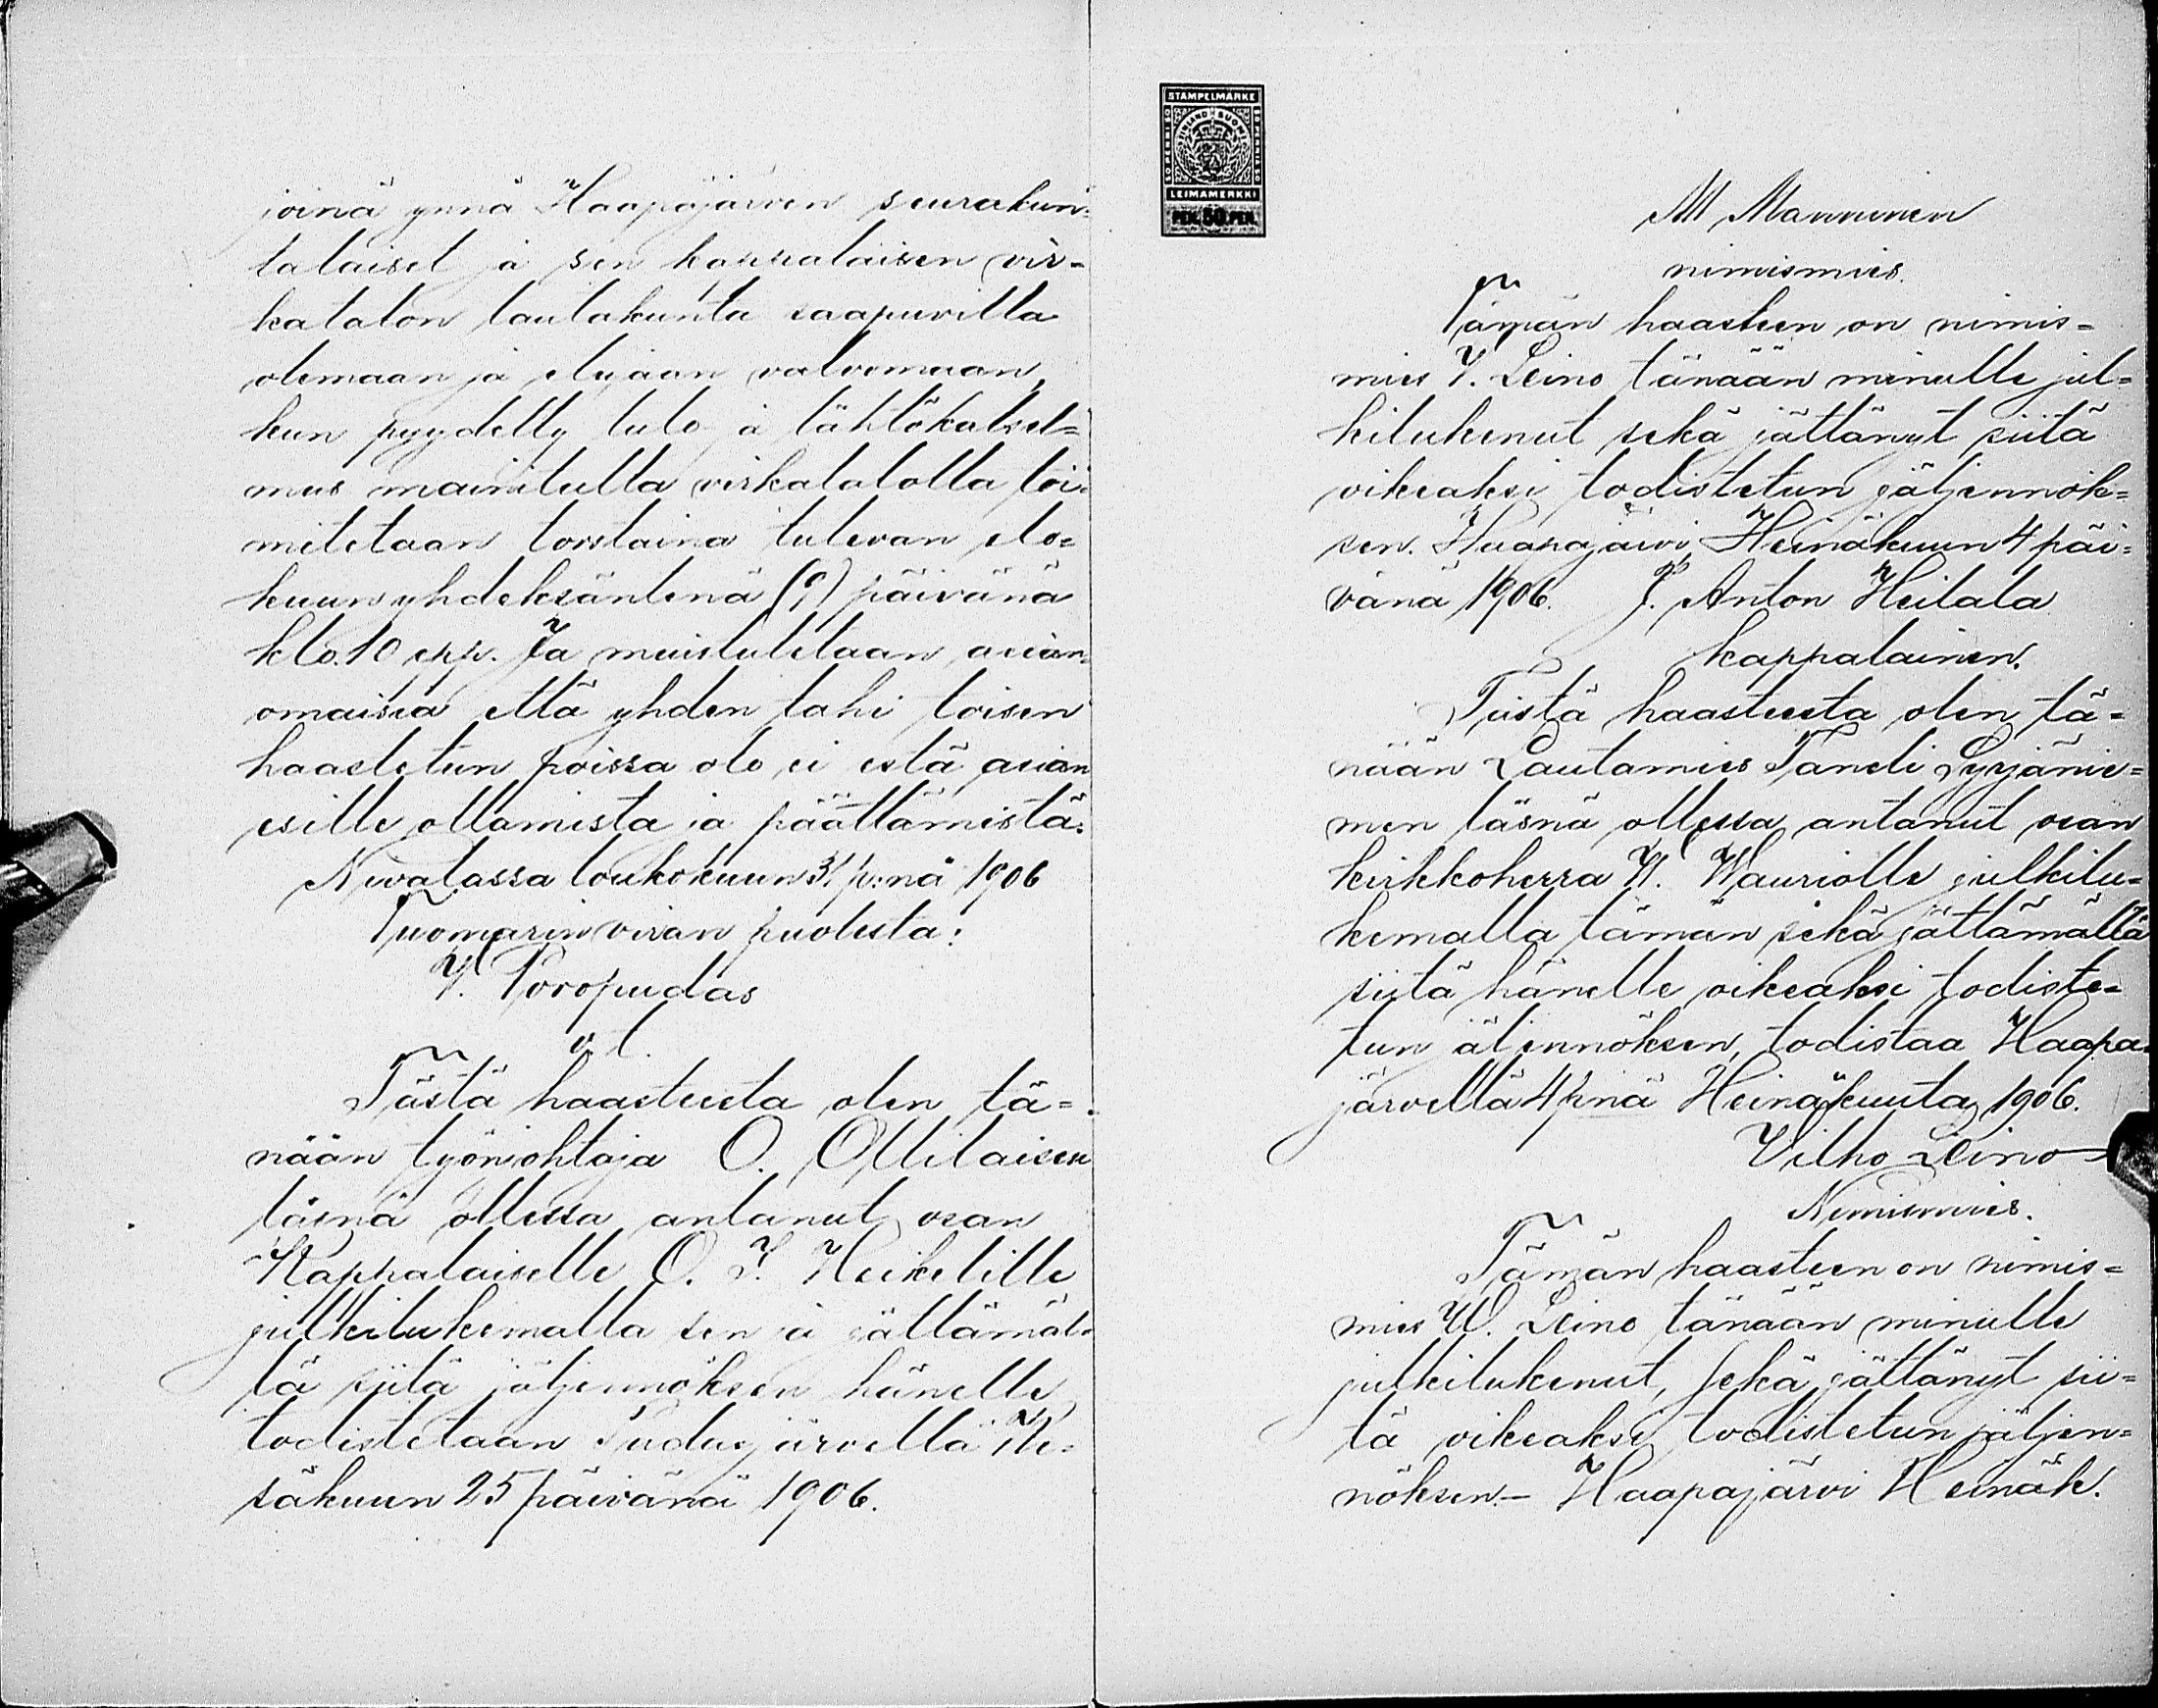 joina ynnä Haapajärven seurakun-
talaiset ja sen kappalaisen vir-
katalon lautakunta saapuvilla
olemaan ja etujaan valvomaan,
kun pyydetty tulo ja lähtökatsel-
mus mainitulla virkatalolla toi-
mitetaan torstaina tulevan elo-
kuun yhdeksäntenä (9) päivänä
klo. 10 epp. Ja muistutetaan asian-
omaisia että yhden tahi toisen
haastetun poissa olo ei estä asian
esille ottamista ja päättämistä.
Nivalassa toukokuun 31 p:nä 1906
Tuomarin viran puolesta:
Y. Poropudas
v. t.
Tästä haasteesta olen tä-
nään työnjohtaja O. Ollilaisen
läsnä ollessa antanut osan
Kappalaiselle O. I. Heikelille
julkilukemalla sen ja jättämäl-
lä siitä jäljennöksen hänelle
todistetaan Pudasjärvellä Ke-
säkuun 25 päivänä 1906.
STAMPELMARKE
FINLAND SUOMI
50 PENNI 50
50 PENNIÄ 50
LEIMAMERKKI
PEN. 50 PEN.
M Manninen
nimismies.
Tämän haasteen on nimis-
mies V. Leino tänään minulle jul-
kilukenut sekä jättänyt siitä
oikeaksi todistetun jäljennök-
sen. Haapajärvi, Heinäkuun 4 päi-
vänä 1906. J. Anton Heilala
kappalainen.
Tästä haasteesta olen tä-
nään Lautamies Taneli Syrjänie-
men läsnä ollessa antanut osan
kirkkoherra K. Wauriolle julkilu-
kemalla tämän sekä jättämällä
siitä hänelle oikeaksi todiste-
tun jäljennöksen, todistaa Haapa-
järvellä 4 p:nä Heinäkuuta 1906.
Vilho Leino
Nimismies.
Tämän haasteen on nimis-
mies W. Leino tänään minulle
julkilukenut, sekä jättänyt sii-
tä oikeaksi todistetun jäljen-
nöksen.- Haapajärvi Heinäk.